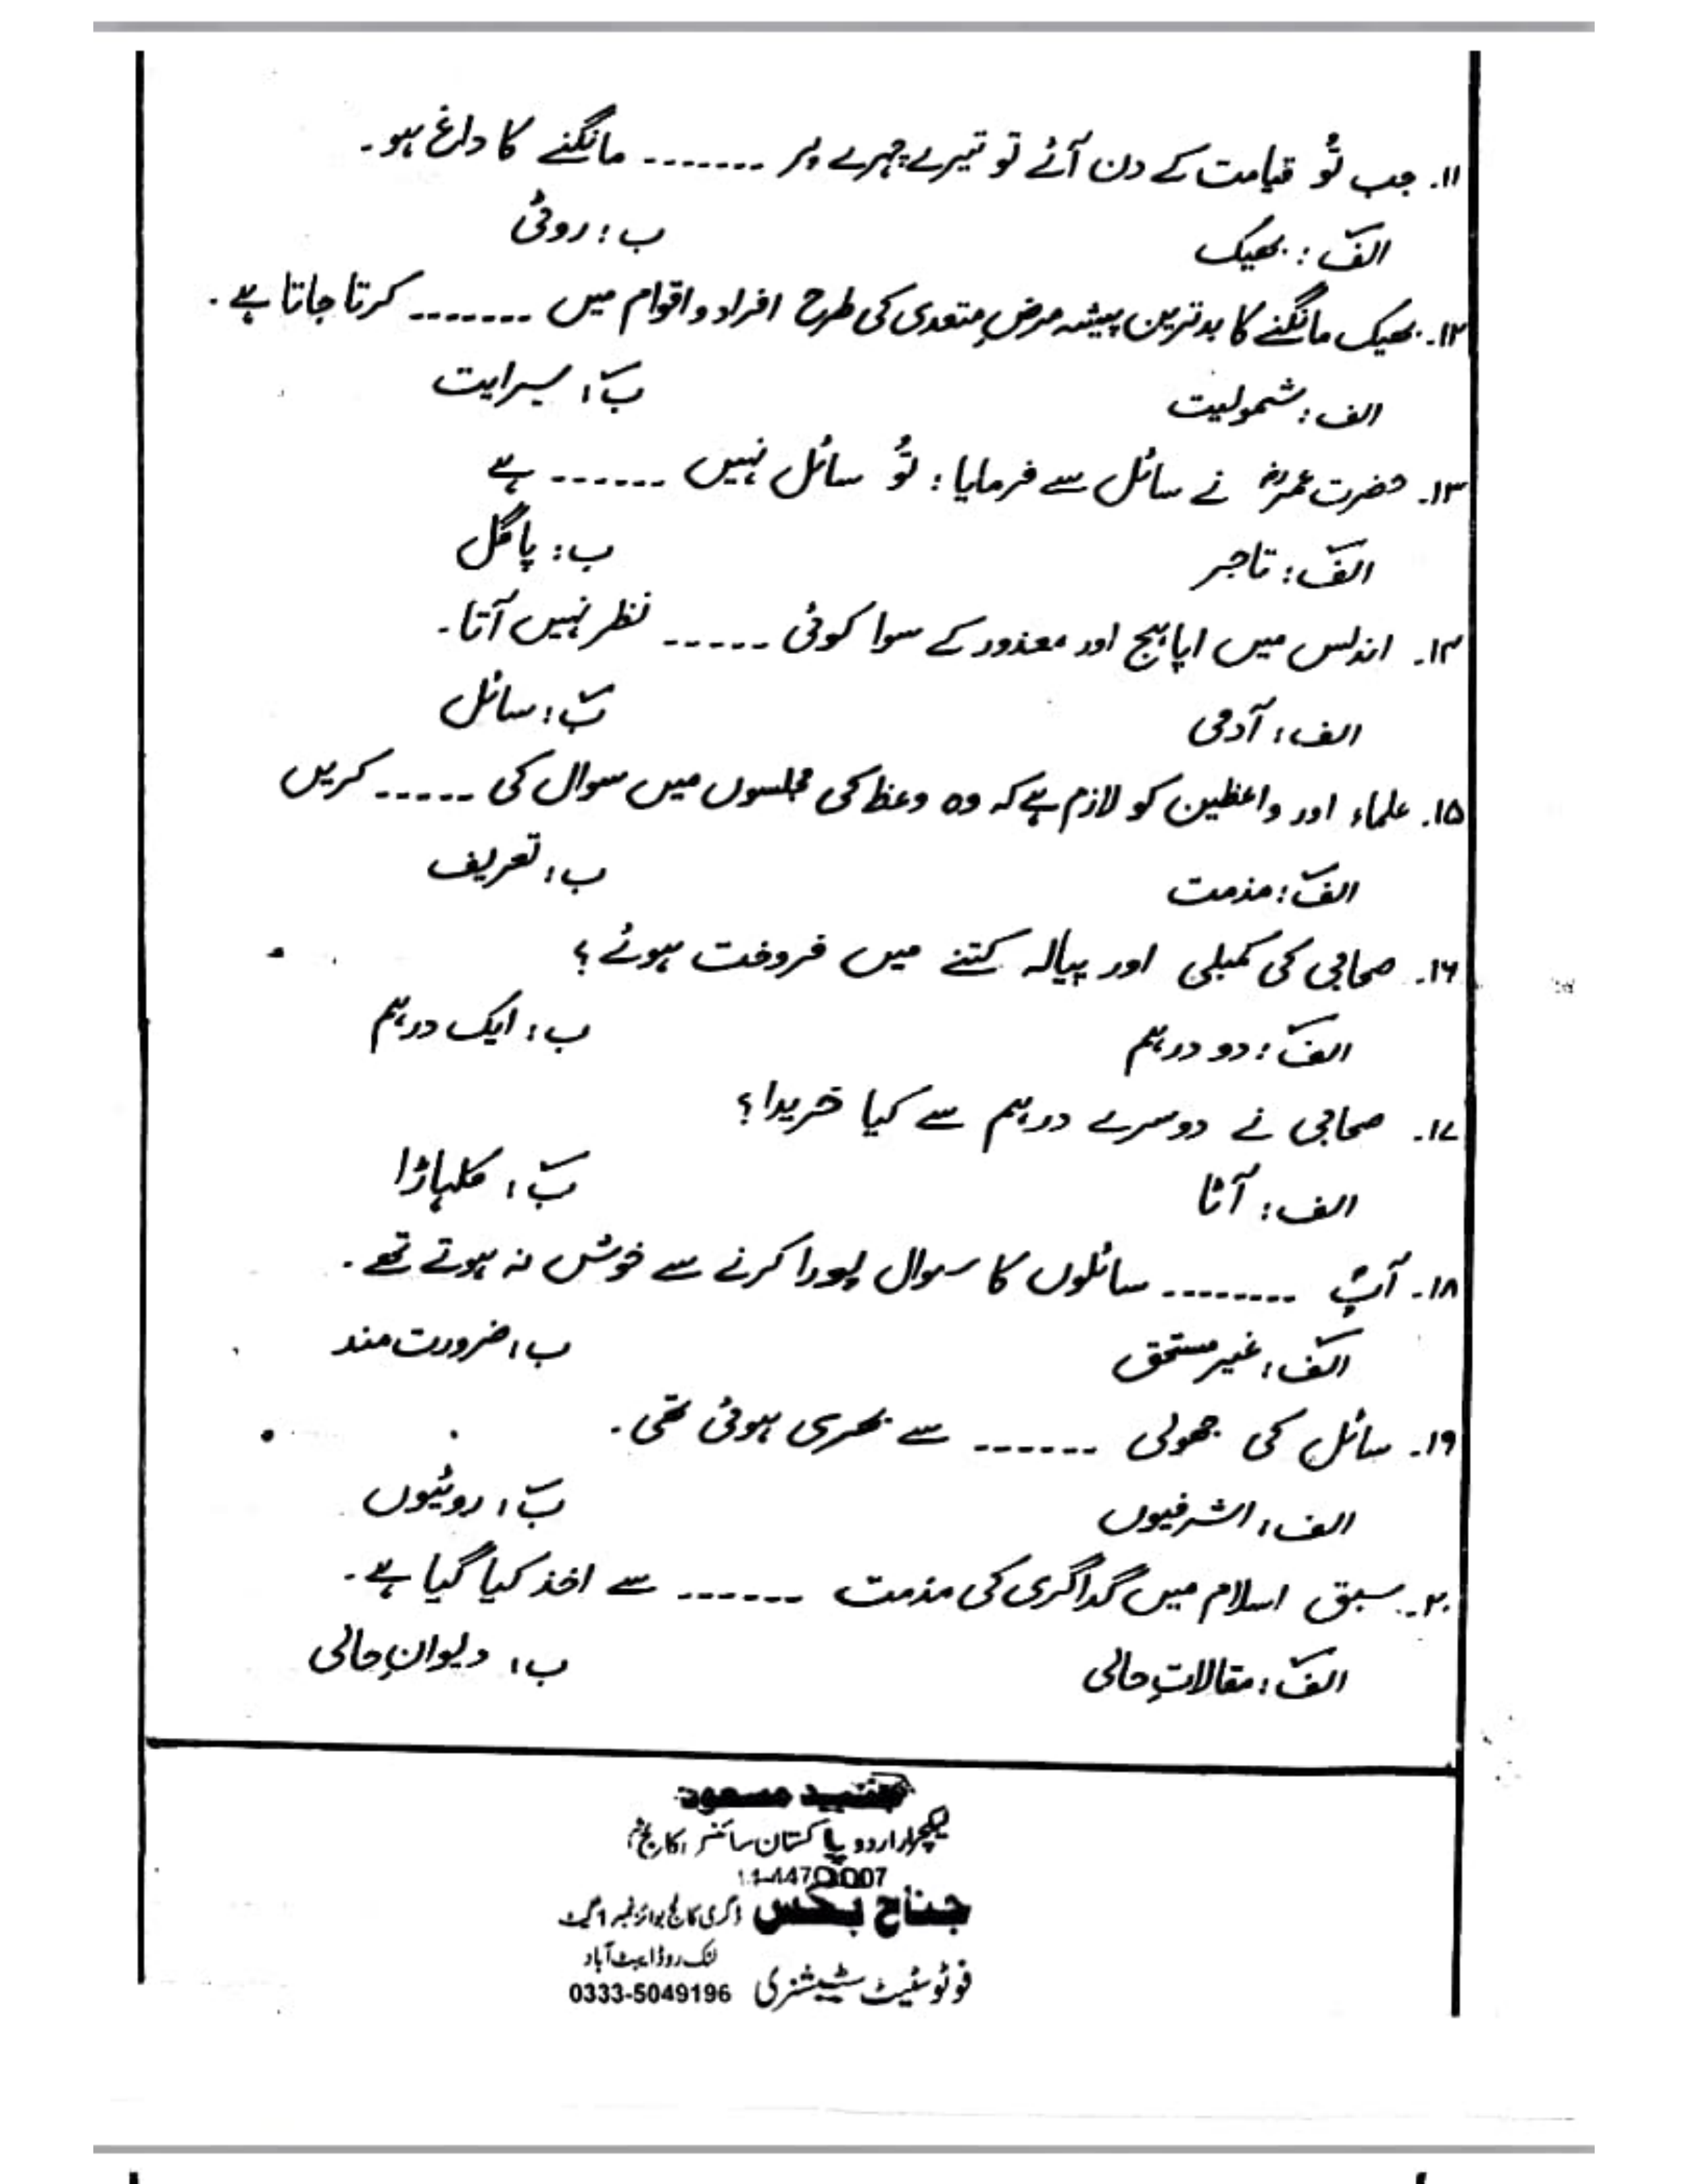 ۱۱۔ جب تُو قیامت کے دن آئے تو تیرے چہرے پر ------- مانگنے کا داغ ہو۔
الف: بھیک ب: روٹی
۱۲۔ بھیک مانگنے کا بدترین پیشہ مرضِ متعدی کی طرح افراد و اقوام میں ------- کرتا جاتا ہے۔
الف: شمولیت ب: سرایت
۱۳۔ حضرت عمرؓ نے سائل سے فرمایا: تُو سائل نہیں ------ ہے
الف: تاجر ب: پاگل
۱۴۔ اندلس میں اپاہج اور معذور کے سوا کوئی ----- نظر نہیں آتا۔
الف: آدمی ب: سائل
۱۵۔ علماء اور واعظین کو لازم ہے کہ وہ وعظ کی مجلسوں میں سوال کی ----- کریں
الف: مذمت ب: تعریف
۱۶۔ صحابی کی کمبلی اور پیالہ کتنے میں فروخت ہوئے؟
الف: دو درہم ب: ایک درہم
۱۷۔ صحابی نے دوسرے درہم سے کیا خریدا؟
الف: آٹا ب: کلہاڑا
۱۸۔ آپؐ -------- سائلوں کا سوال پورا کرنے سے خوش نہ ہوتے تھے۔
الف: غیر مستحق ب: ضرورت مند
۱۹۔ سائل کی جھولی ------ سے بھری ہوئی تھی۔
الف: اشرفیوں ب: روٹیوں
۲۰۔ سبق اسلام میں گداگری کی مذمت ------ سے اخذ کیا گیا ہے۔
الف: مقالاتِ حالی ب: دیوانِ حالی
مسعود
لیکچرار اردو پاکستان سائنس
جناح بکس ڈگری کالج بوائز نمبر 1 گیٹ
لنک روڈ ایبٹ آباد
فوٹو سٹیٹ سٹیشنری 0333-5049196